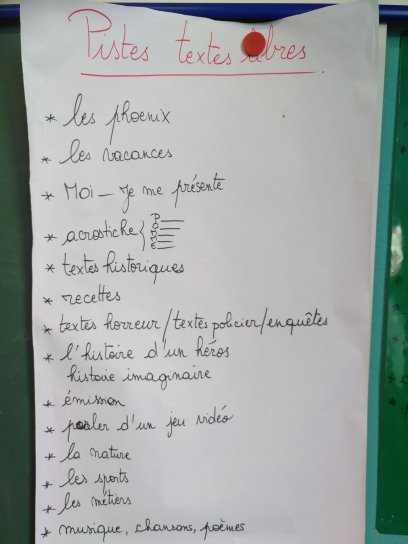 Pistes textes libres
* les phoenix
* les vacances
* Moi - Je me présente
* acrostiche { POMME
* textes historiques
* recettes
* textes horreur/textes policier/enquêtes
* l'histoire d'un héros
histoire imaginaire
* émission
* parler d'un jeu vidéo
* la nature
* les sports
* les métiers
* musique, chansons, poèmes